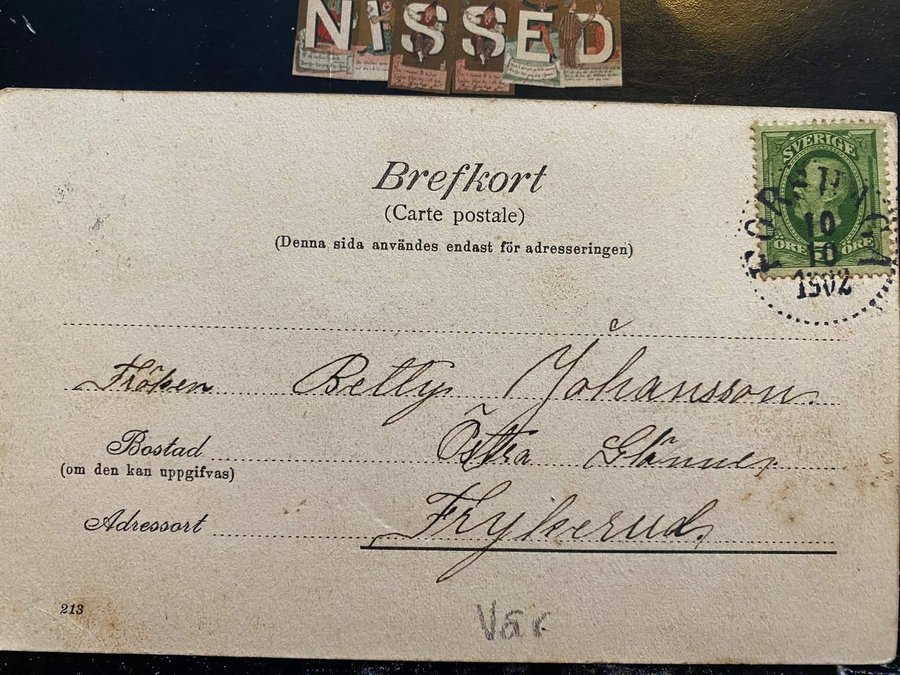 NISSED
Brefkort
(Carte postale)
(Denna sida användes endast för adresseringen)
SVERIGE
ÖRE ÖRE
10
10
1902
Fröken Betty Johansson.
Bostad Östra Glänne,
(om den kan uppgifvas)
Adressort Frykerud,
213
Vär